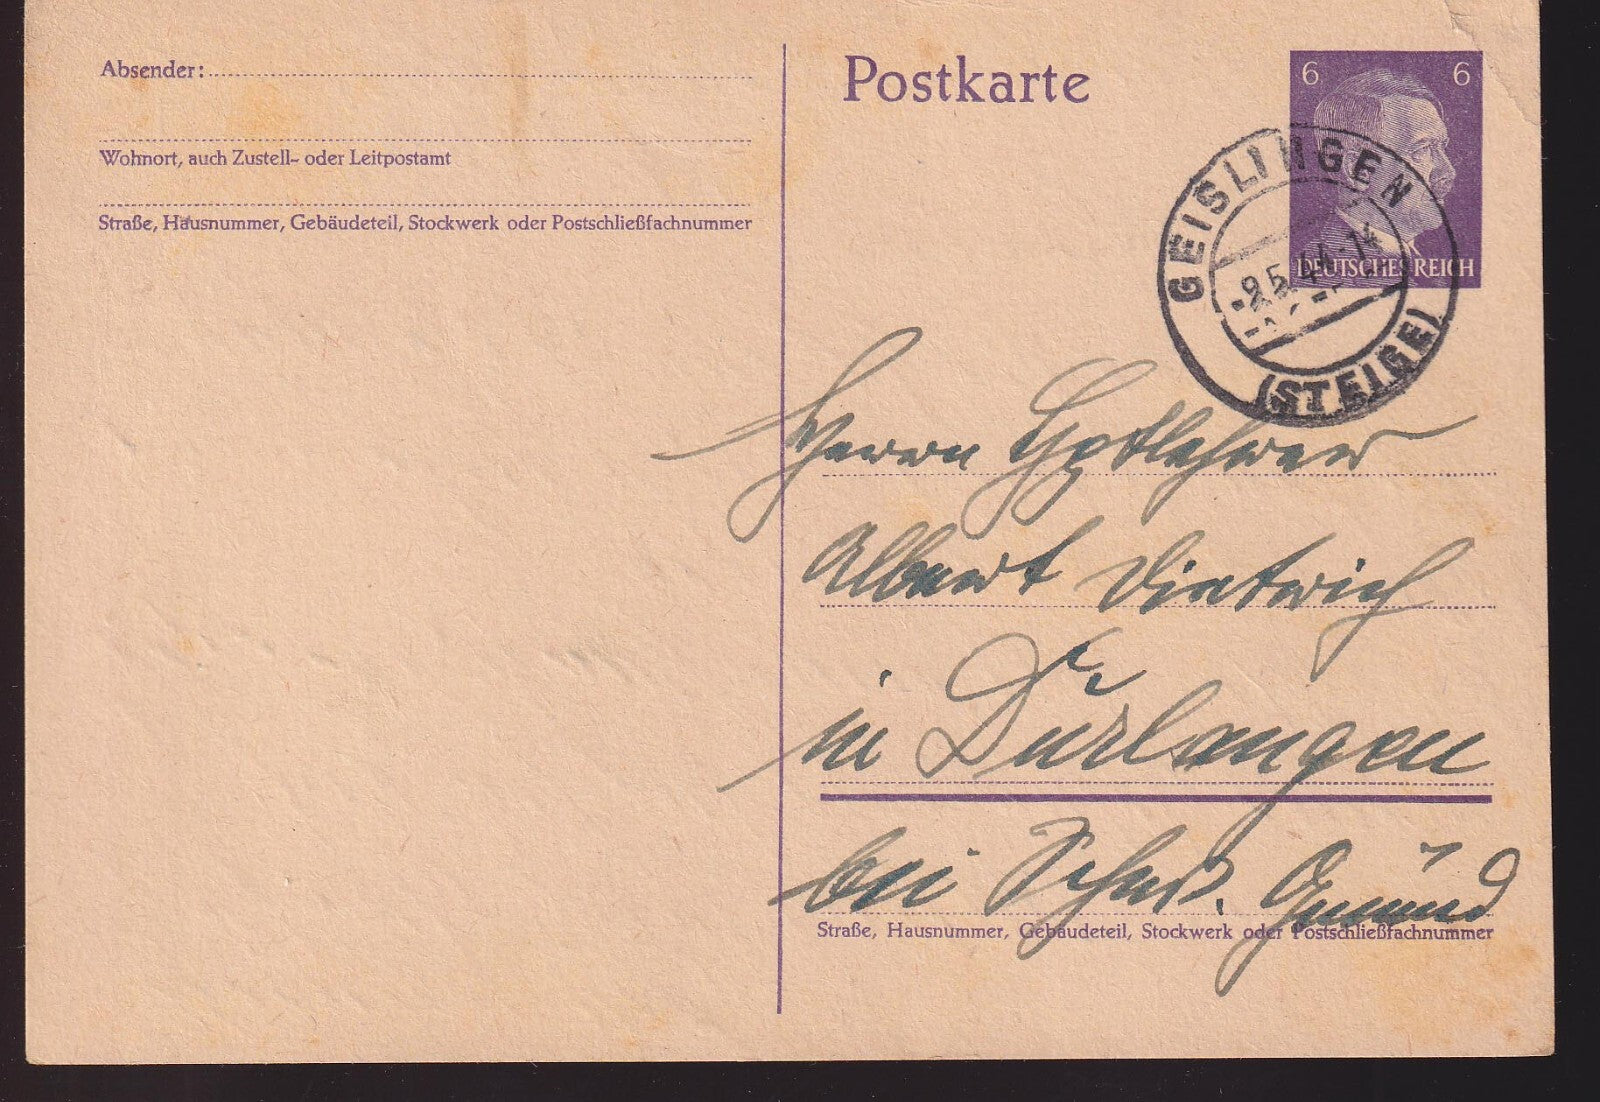 Absender:
Wohnort, auch Zustell- oder Leitpostamt
Straße, Hausnummer, Gebäudeteil, Stockwerk oder Postschließfachnummer
Postkarte
6 6
DEUTSCHES REICH
GEISLINGEN
-9.5.44-
(STEIGE)
Herrn
Albert Dietrich
in Durlangen
bei Schwb. Gmünd
Straße, Hausnummer, Gebäudeteil, Stockwerk oder Postschließfachnummer